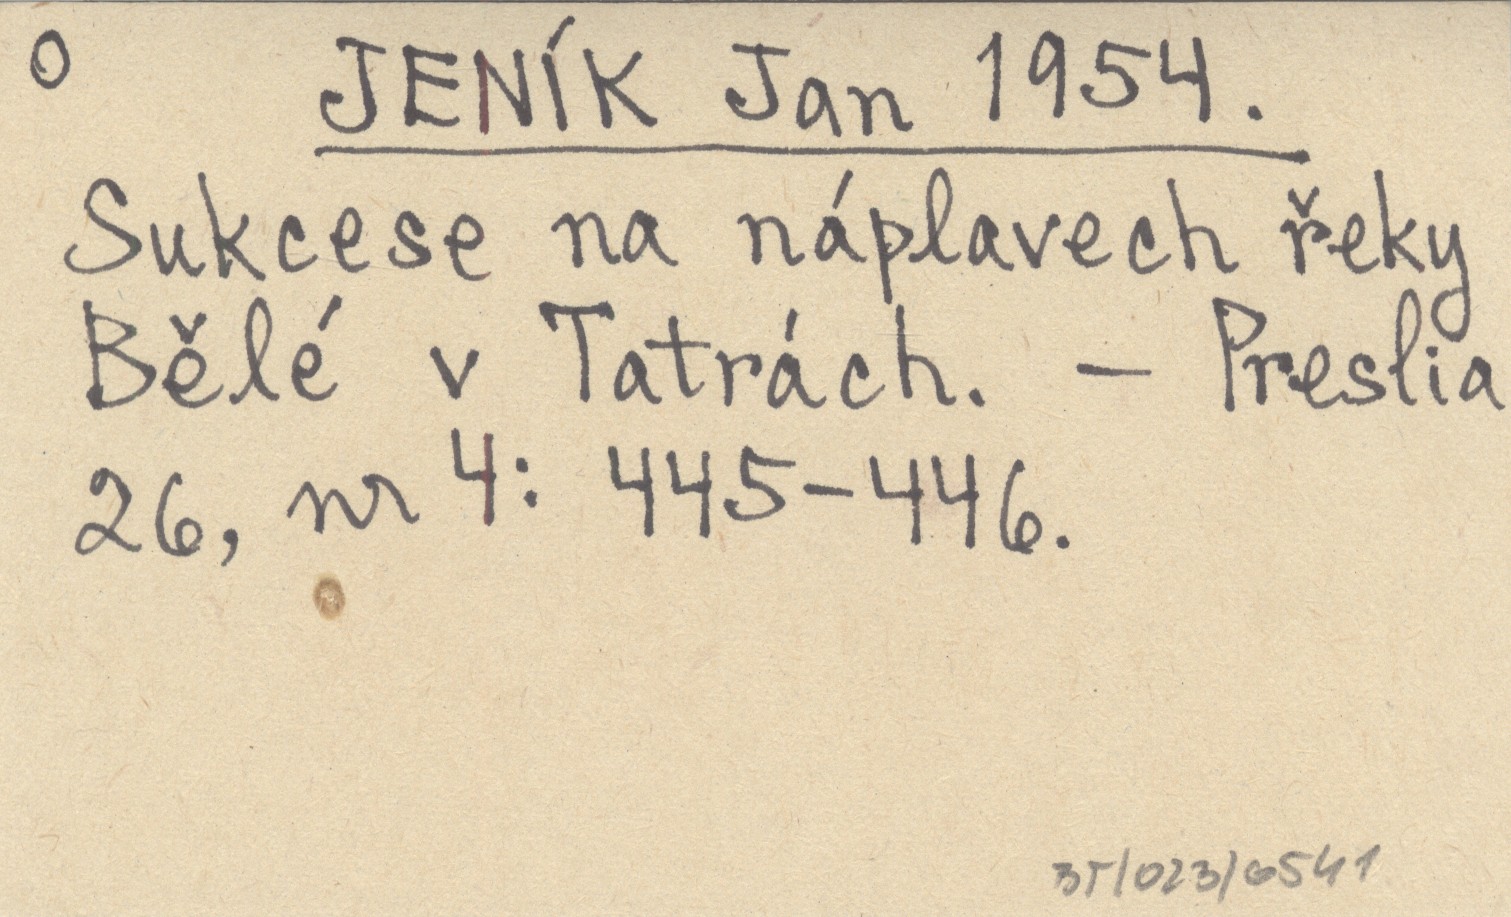 O JENÍK Jan 1954.
Sukcese na náplavech řeky
Bělé v Tatrách. – Preslia
26, nr 4: 445–446.
BT/023/6541